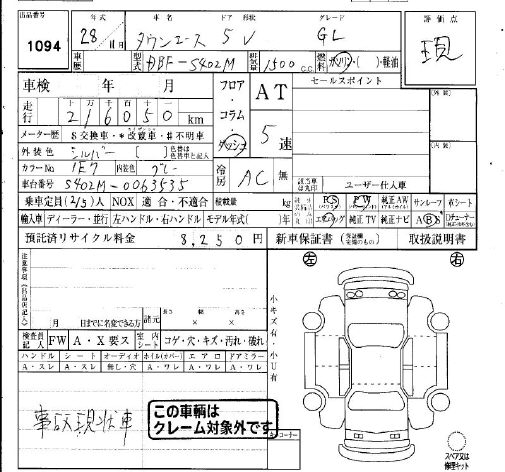 出品番号 年式 車名 ドア 形状 グレード 評価点
1094 28年 11月 タウンエース 5 V GL 現
車歴 型式 DBF-S402M 排気量 1500 c.c. 燃料 ガソリン・( )・軽油
車検 年 月 フロア・コラム・ダッシュ AT 5速 セールスポイント
走行 十万 万 千 百 十 一
216050 km
メーター歴 $交換車・*改竄車・#不明車
外装色 シルバー 色替は色替車と記入
カラーNo 1E7 内装色 グレー 冷房 AC 無 ユーザー仕入車
車台番号 S402M-0063535
乗車定員(2/5)人 NOX 適合・不適合 積載量 kg PS PW 純正AW サンルーフ 革シート
輸入車 ディーラー・並行 左ハンドル・右ハンドル モデル年式( )年 エアバッグ 純正TV 純正ナビ ABS
預託済リサイクル料金 8,250円 新車保証書 取扱説明書
注意事項
左 右
月 日までに名変できる方 諸元 長さ 幅 高さ
検査員記入 FW A・X要ス 室内シート コゲ・穴・キズ・汚れ・破れ
小キズ有・小U有
ハンドル シート オーディオ ホイル(カバー) エアロ ドアミラー
A・スレ A・スレ 無し・穴 A・ワレ A・ワレ A・ワレ
事故現状車
この車輌は
クレーム対象外です
コーナー
スペア又は
修理キット